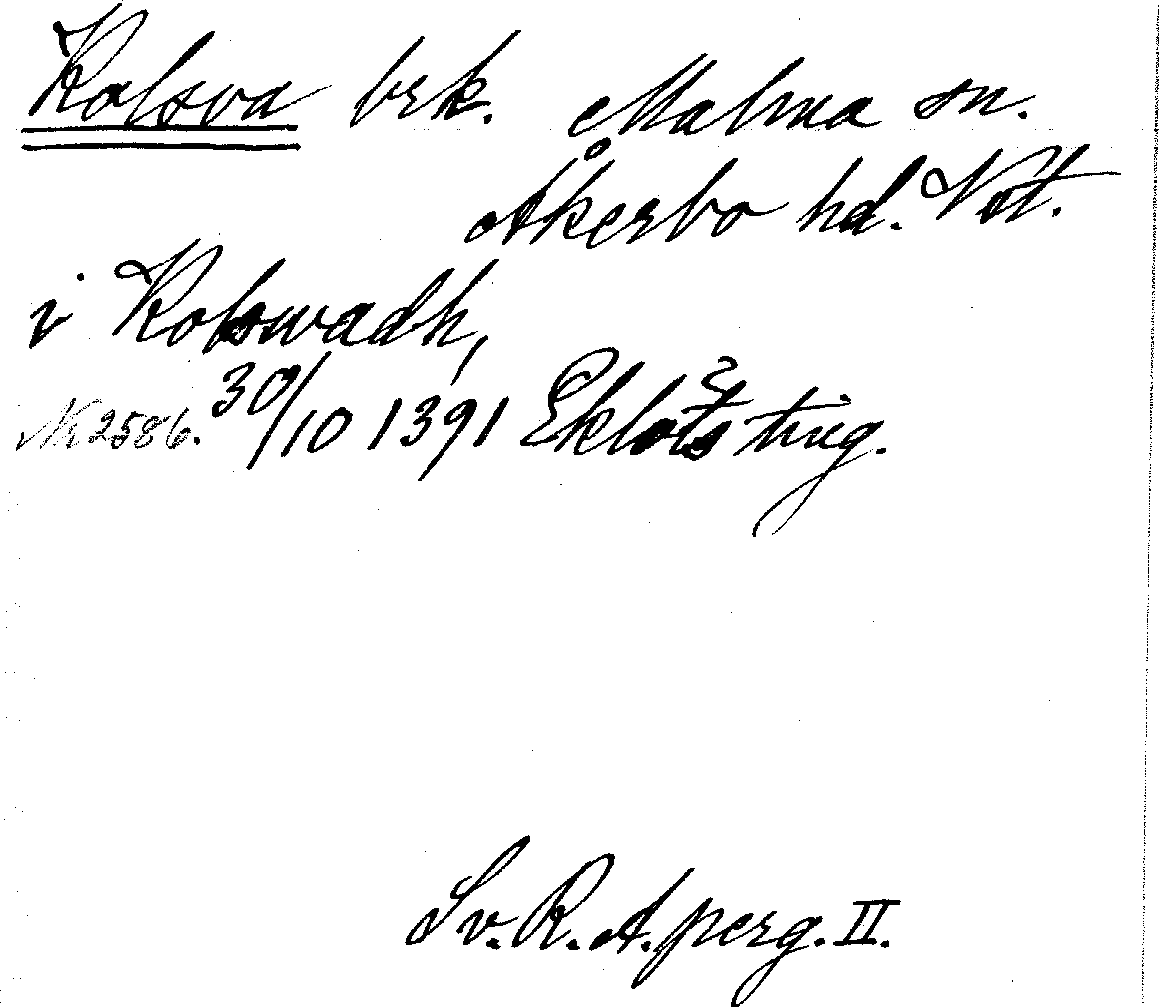 Kolsva brk. Malma sn.
Åkerbo hd. Vstl.
i Kolswadh,
Nr 2586. 30/10 1391 Eklots ting.
Sv. R. A. perg. II.